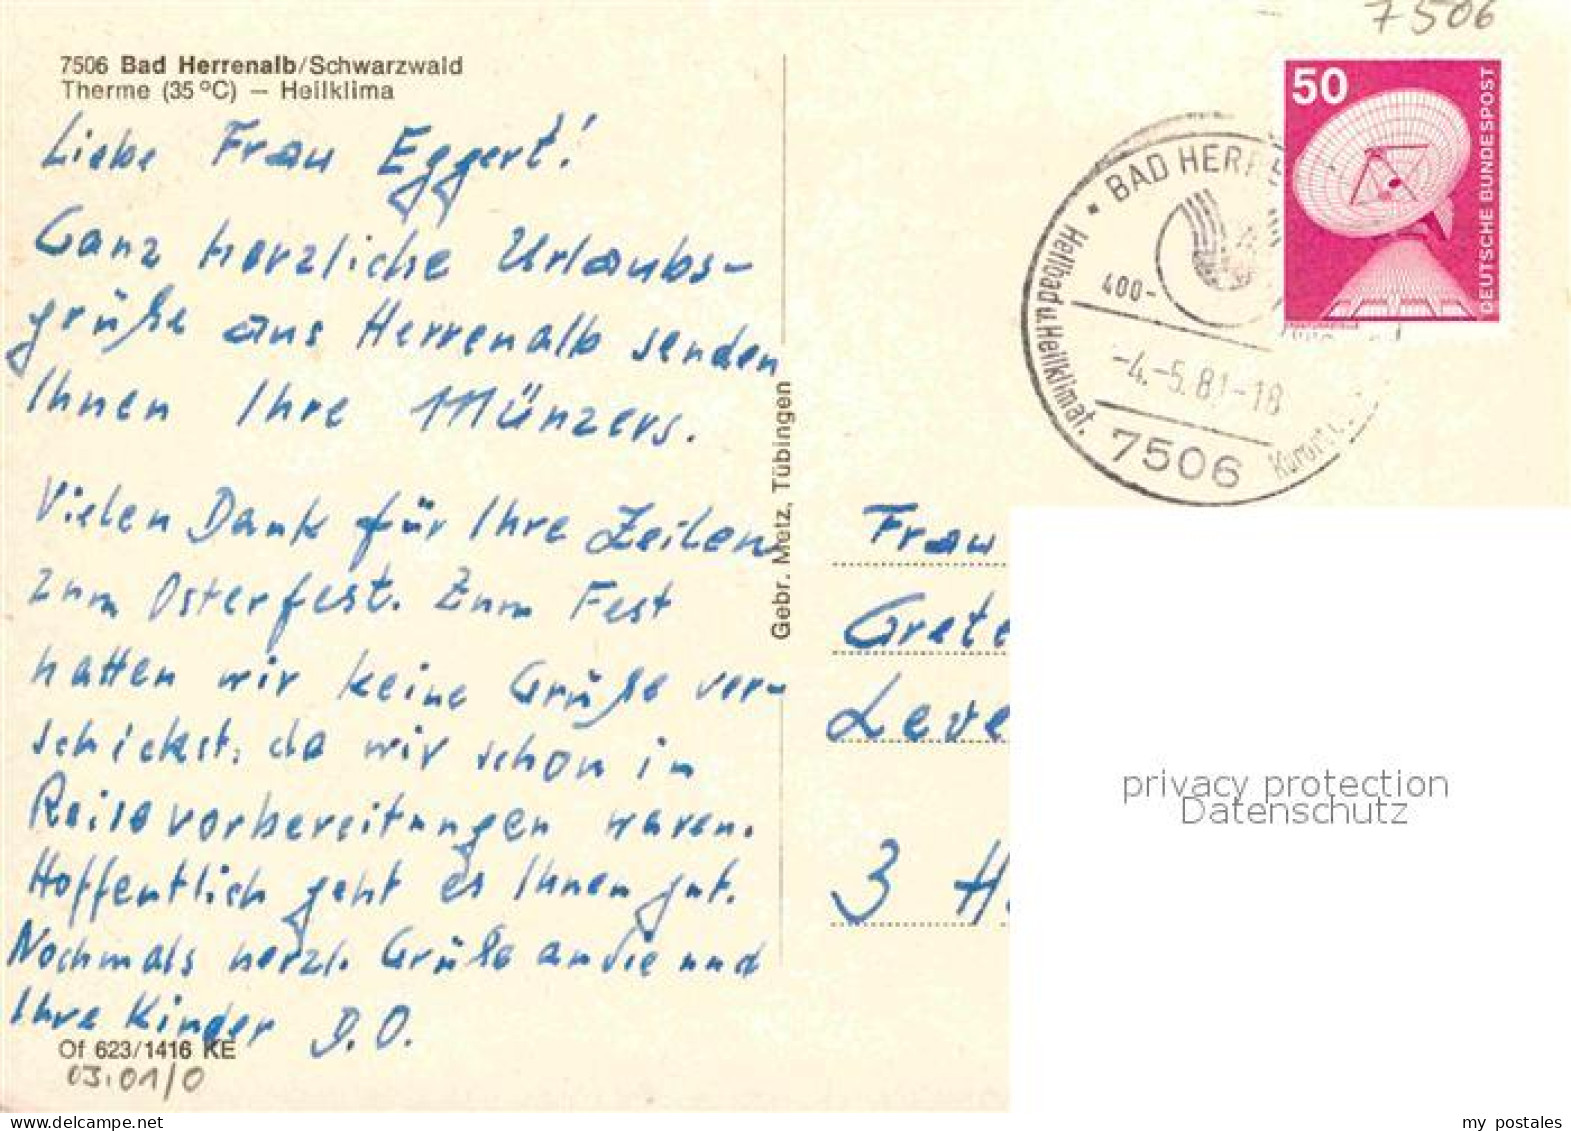 7506
7506 Bad Herrenalb/Schwarzwald
Therme (35 °C) — Heilklima
Liebe Frau Eggert!
Ganz herzliche Urlaubs-
grüße aus Herrenalb senden
Ihnen Ihre Münzers.
Vielen Dank für Ihre Zeilen
zum Osterfest. Zum Fest
hatten wir keine Grüße ver-
schickt, da wir schon in
Reisevorbereitungen waren.
Hoffentlich geht es Ihnen gut.
Nochmals herzl. Grüße an Sie und
Ihre Kinder D.O.
Of 623/1416 KE
03.01/0
Gebr. Metz, Tübingen
50
DEUTSCHE BUNDESPOST
BAD HERRE
Heilbad u. Heilklimat.
400-
-4.-5.81-18
7506
Kurort
Frau
Grete
Leve
3 H
privacy protection
Datenschutz
my_postales